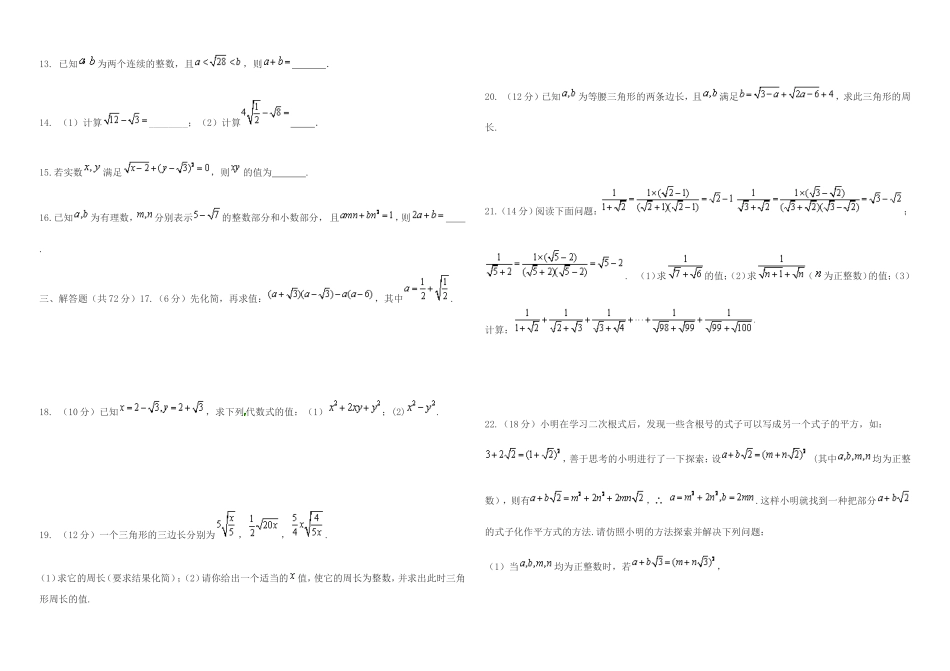 13. 已知a b为两个连续的整数，且a < √28 < b，则a + b = ______.
14. （1）计算√12 − √3 = ________；（2）计算4√(1/2) − √8 = ____.
15.若实数x, y满足√(x − 2) + (y − √3)² = 0，则xy的值为______.
16.已知a,b为有理数，m,n分别表示5 − √7的整数部分和小数部分，且amn + bn² = 1，则2a + b = ____
.
三、解答题（共72分）17.（6分）先化简，再求值：(a + √3)(a − √3) − a(a − 6)，其中a = 1/2 + √(1/2).
18. （10分）已知x = 2 − √3, y = 2 + √3，求下列代数式的值：（1）x² + 2xy + y²；(2)x² − y².
19. （12分）一个三角形的三边长分别为5√(x/5)，1/2√(20x)，5/4 x√(4/(5x)).
（1）求它的周长（要求结果化简）；（2）请你给出一个适当的x值，使它的周长为整数，并求出此时三角
形周长的值.
20. （12分）已知a,b为等腰三角形的两条边长，且a,b满足b = √(3 − a) + √(2a − 6) + 4，求此三角形的周
长.
21.（14分）阅读下面问题：1/(1 + √2) = 1×(√2 − 1)/((√2 + 1)(√2 − 1)) = √2 − 1 1/(√3 + √2) = 1×(√3 − √2)/((√3 + √2)(√3 − √2)) = √3 − √2；
1/(√5 + 2) = 1×(√5 − 2)/((√5 + 2)(√5 − 2)) = √5 − 2. （1）求1/(√7 + √6)的值；（2）求1/(√(n + 1) + √n)（n为正整数）的值；（3）
计算：1/(1 + √2) + 1/(√2 + √3) + 1/(√3 + √4) + ⋯ + 1/(√98 + √99) + 1/(√99 + √100).
22.（18分）小明在学习二次根式后，发现一些含根号的式子可以写成另一个式子的平方，如：
3 + 2√2 = (1 + √2)²，善于思考的小明进行了一下探索：设a + b√2 = (m + n√2)²（其中a,b,m,n均为正整
数），则有a + b√2 = m² + 2n² + 2mn√2，∴ a = m² + 2n², b = 2mn.这样小明就找到一种把部分a + b√2
的式子化作平方式的方法.请仿照小明的方法探索并解决下列问题：
（1）当a,b,m,n均为正整数时，若a + b√3 = (m + n√3)²，